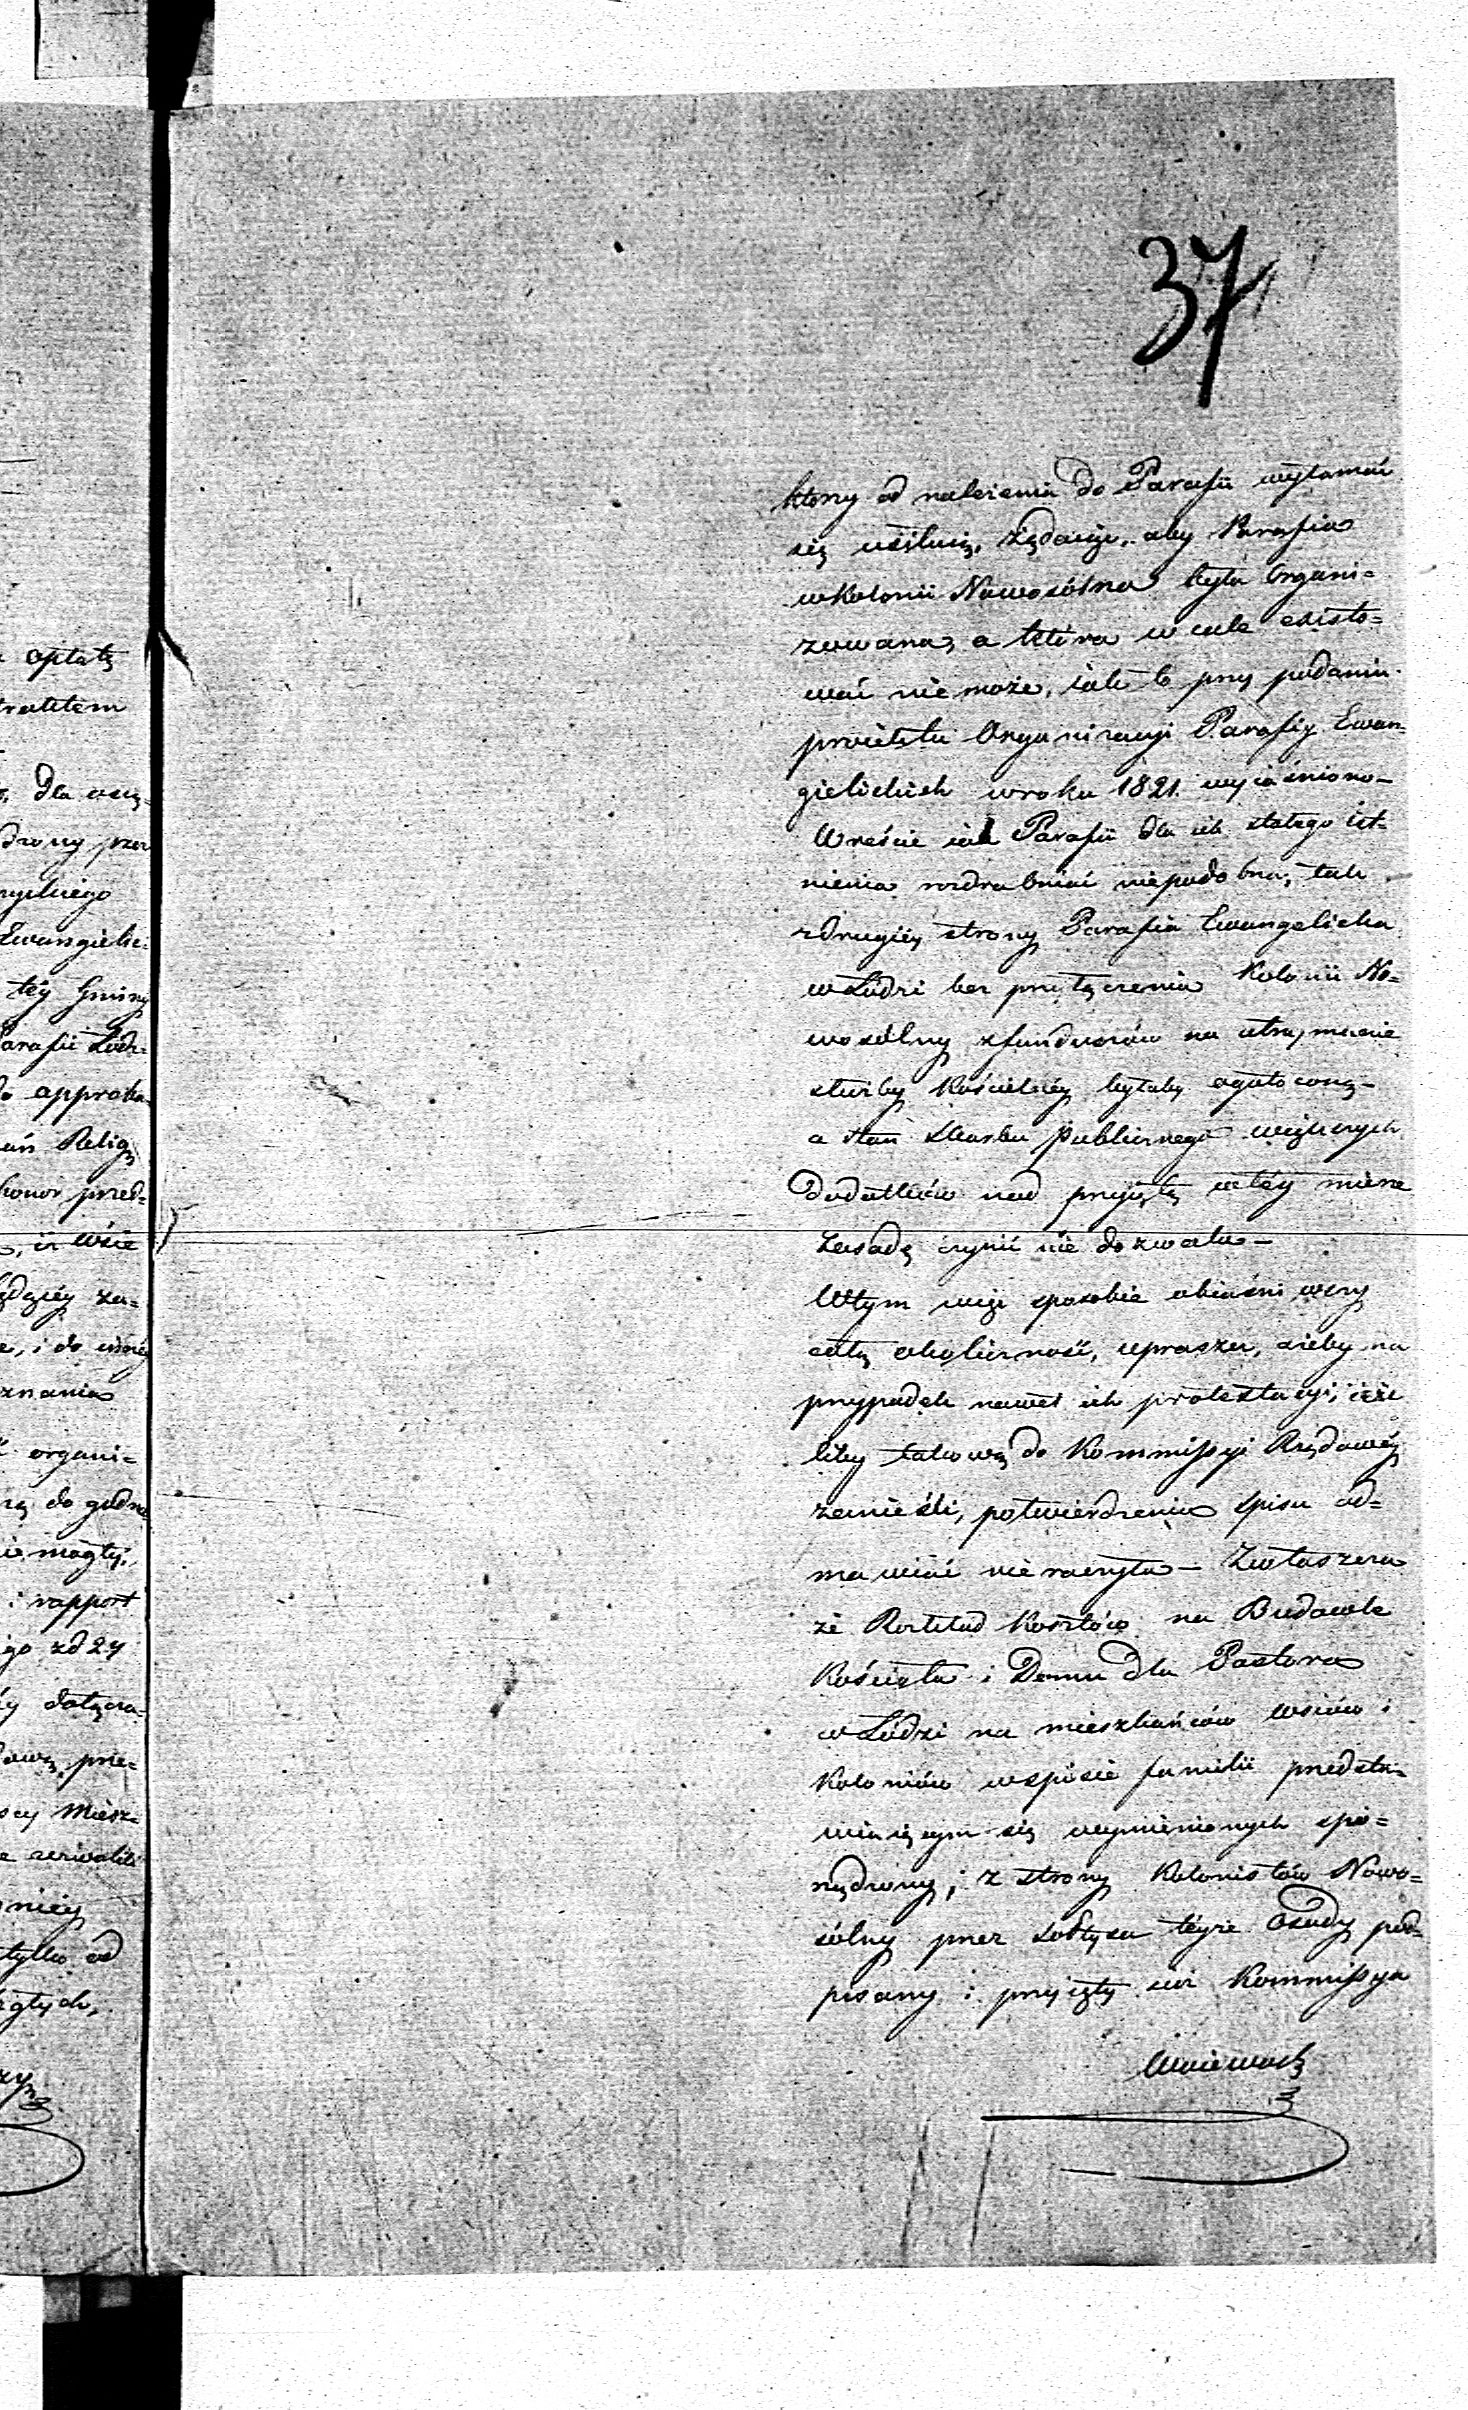 37
ktory od należenia do Parafii wyłamać
się usiłuią, żądaiąc, aby Parafia
w Kolonii Nowosólna była Organi=
zowana, a która w cale exysto=
wać nie może, iak to przy podaniu
proiektu Organizacyi Parafiy Ewan=
gielickich w roku 1821. wyiaśniono—
Wreście iak Parafii dla ich stałego ist=
nienia rozdrabniać niepodobna; tak
z drugiéy strony Parafia Ewangelicka
w Łodzi bez przyłączenia Kolonii No=
wosólny z funduszów na utrzymanie
służby Kościelnéy byłaby ogołoconą—
a stan Skarbu publicznego więkzych
Dodatków nad przyiętą w téy mierze
zasadę czynić nie dozwala—
W tym więc sposobie obiaśniwszy
całą okoliczność, uprasza, ażeby na
przypadek nawet ich protestacyi, ieże
liby takową do Kommissyi Rządowéy
zanieśli, potwierdzenia spisu od=
mawiać nie raczyła— Zwłaszcza
że Rozkład Kosztów na Budowle
Kościoła i Domu dla Pastora
w Łodzi na mieszkańców wsiów i
Koloniów w spisie familii przedsta=
wiaiącym się wymienionych spo=
rządzony, z strony Kolonistów Nowo=
sólny przez sołtysa téyże Osady pod=
pisany i przyięty iuż Kommissya
Woiewodz
opłatę
traktem
dla
drony przez
Ewangielic=
téy Gminy
Parafii Łodz=
do approba
Relig
honor przed=
iż wsie
za=
znania
organi=
i rapport
zd 24
dołącza=
prze=
Miesz=
tylko od